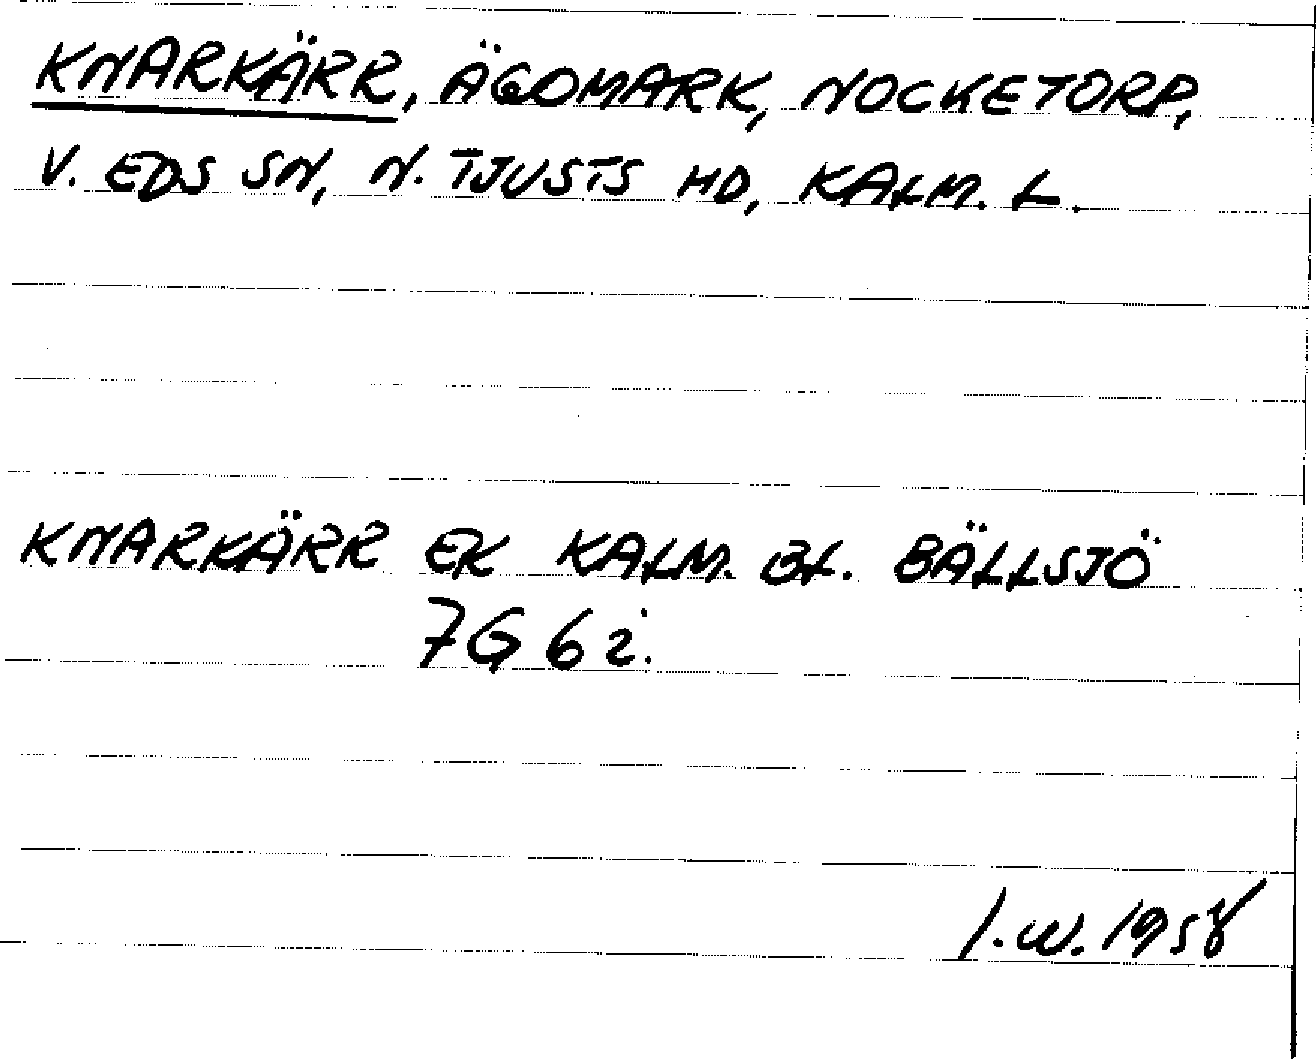 KNARKÄRR, ÄGOMARK, NOCKETORP,
V. EDS SN, N. TJUSTS HD, KALM. L.
KNARKÄRR EK KALM. BL. BÄLLSJÖ
7G 6 i.
I.W. 1958